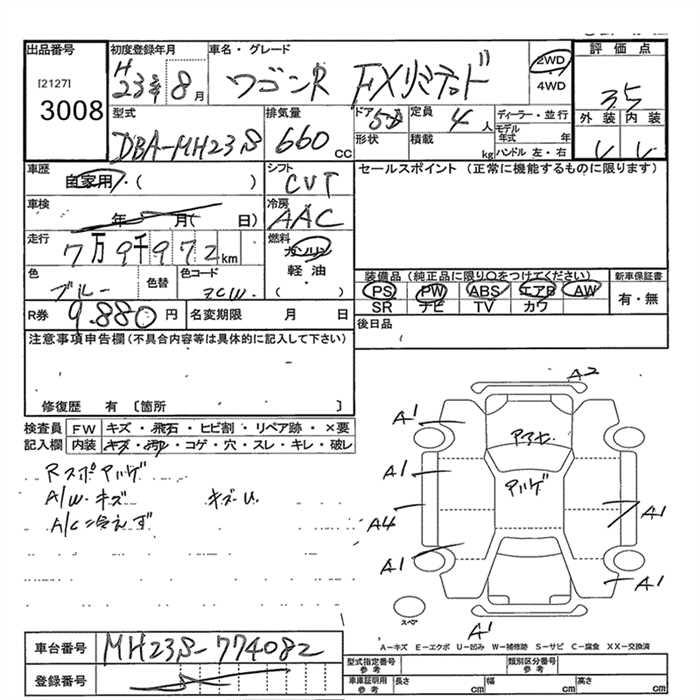 出品番号
[2127]
3008
初度登録年月
H
23年 8月
車名・グレード
ワゴンR FXリミテッド
2WD
4WD
評価点
3.5
外装 内装
型式
DBA-MH23S
排気量
660 cc
ドア
5D
形状
定員
4人
積載
kg
ディーラー・並行
モデル年式 年
ハンドル 左・右
車歴
自家用 ( )
シフト
CVT
セールスポイント (正常に機能するものに限ります)
車検
年 月( 日)
冷房
AAC
走行
7万9千972km
燃料
ガソリン
軽油
( )
色
ブルー
色替
色コード
ZCW
装備品 (純正品に限り○をつけてください)
PS PW ABS エアB AW
SR ナビ TV カワ
新車保証書
有・無
R券 9.880円
名変期限 月 日
後日品
注意事項申告欄 (不具合内容等は具体的に記入して下さい)
修復歴 有 〔箇所 〕
検査員記入欄
FW キズ・飛石・ヒビ割・リペア跡・×要
内装 キズ・汚・コゲ・穴・スレ・キレ・破レ
Rスポハゲ
A/W・キズ
A/C冷えず
A2
A1
A1
A4
A1
A1
A1
A1
ハゲ
スペア
A-キズ E-エクボ U-凹み W-補修跡 S-サビ C-腐食 XX-交換済
車台番号
MH23S-774082
登録番号
型式指定番号 参考
類別区分番号 参考
車庫証明用 参考
長さ cm 幅 cm 高さ cm